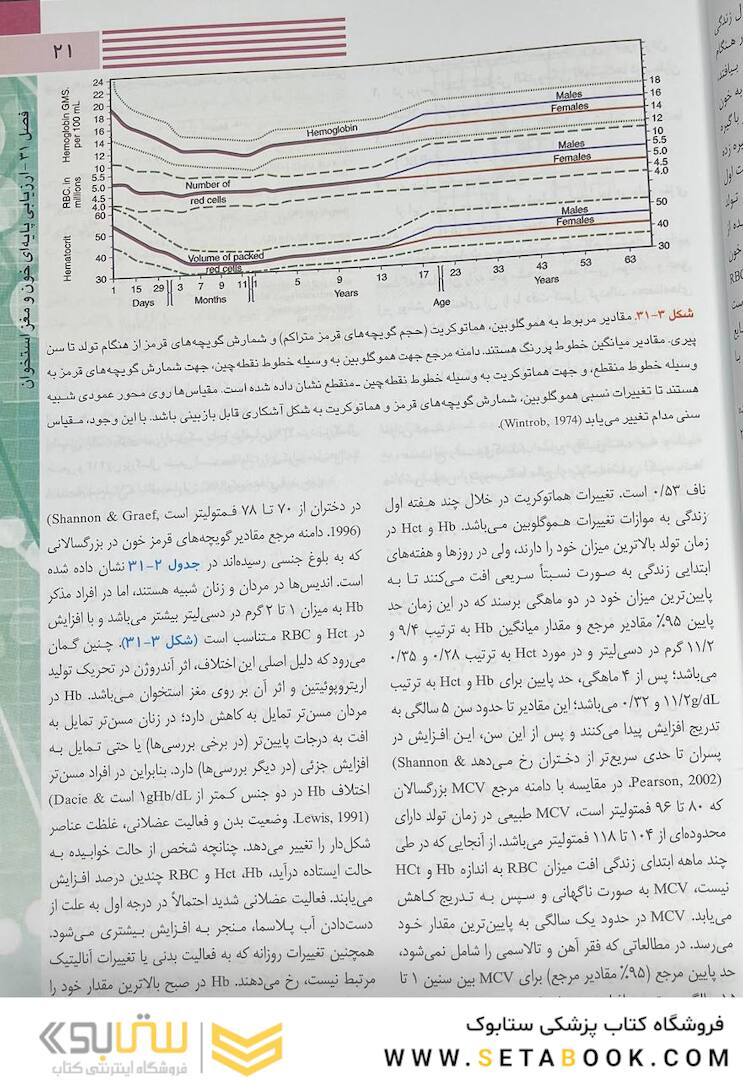 ۲۱
فصل ۳۱ - ارزیابی پایه‌ای خون و مغز استخوان
Hemoglobin GMS.
per 100 mL
24
22
20
18
16
14
12
10
RBC. in
millions
5.5
5.0
4.5
4.0
Hematocrit
60
50
40
30
Hemoglobin
Males
Females
18
16
14
12
10
Number of
red cells
Males
Females
5.5
5.0
4.5
4.0
Volume of packed
red cells
Males
Females
50
40
30
1 15 29 3 7 9 11 1 5 9 13 17 23 33 43 53 63
Days Months Years Age Years
شکل ۳-۳۱. مقادیر مربوط به هموگلوبین، هماتوکریت (حجم گویچه‌های قرمز متراکم) و شمارش گویچه‌های قرمز از هنگام تولد تا سن
پیری. مقادیر میانگین خطوط پررنگ هستند. دامنه مرجع جهت هموگلوبین به وسیله خطوط نقطه‌چین، جهت شمارش گویچه‌های قرمز به
وسیله خطوط منقطع، و جهت هماتوکریت به وسیله خطوط نقطه‌چین ـ منقطع نشان داده شده است. مقیاس‌ها روی محور عمودی شبیه
هستند تا تغییرات نسبی هموگلوبین، شمارش گویچه‌های قرمز و هماتوکریت به شکل آشکاری قابل بازبینی باشد. با این وجود، مقیاس
سنی مدام تغییر می‌یابد (Wintrob, 1974).
ناف ۰/۵۳ است. تغییرات هماتوکریت در خلال چند هفته اول
زندگی به موازات تغییرات هموگلوبین می‌باشد. Hb و Hct در
زمان تولد بالاترین میزان خود را دارند، ولی در روزها و هفته‌های
ابتدایی زندگی به صورت نسبتاً سریعی افت می‌کنند تا به
پایین‌ترین میزان خود در دو ماهگی برسند که در این زمان حد
پایین ۹۵٪ مقادیر مرجع و مقدار میانگین Hb به ترتیب ۹/۴ و
۱۱/۲ گرم در دسی‌لیتر و در مورد Hct به ترتیب ۰/۲۸ و ۰/۳۵
می‌باشد؛ پس از ۴ ماهگی، حد پایین برای Hb و Hct به ترتیب
۱۱/۲g/dL و ۰/۳۲ می‌باشد؛ این مقادیر تا حدود سن ۵ سالگی به
تدریج افزایش پیدا می‌کنند و پس از این سن، این افزایش در
پسران تا حدی سریع‌تر از دختران رخ می‌دهد (Shannon &
Pearson, 2002). در مقایسه با دامنه مرجع MCV بزرگسالان
که ۸۰ تا ۹۶ فمتولیتر است، MCV طبیعی در زمان تولد دارای
محدوده‌ای از ۱۰۴ تا ۱۱۸ فمتولیتر می‌باشد. از آنجایی که در طی
چند ماهه ابتدای زندگی افت میزان RBC به اندازه Hb و HCt
نیست، MCV به صورت ناگهانی و سپس به تدریج کاهش
می‌یابد. MCV در حدود یک سالگی به پایین‌ترین مقدار خود
می‌رسد. در مطالعاتی که فقر آهن و تالاسمی را شامل نمی‌شود،
حد پایین مرجع (۹۵٪ مقادیر مرجع) برای MCV بین سنین ۱ تا
در دختران از ۷۰ تا ۷۸ فمتولیتر است (Shannon & Graef,
1996). دامنه مرجع مقادیر گویچه‌های قرمز خون در بزرگسالانی
که به بلوغ جنسی رسیده‌اند در جدول ۲-۳۱ نشان داده شده
است. اندیس‌ها در مردان و زنان شبیه هستند، اما در افراد مذکر
Hb به میزان ۱ تا ۲ گرم در دسی‌لیتر بیشتر می‌باشد و با افزایش
در Hct و RBC متناسب است (شکل ۳-۳۱). چنین گمان
می‌رود که دلیل اصلی این اختلاف، اثر آندروژن در تحریک تولید
اریتروپوئیتین و اثر آن بر روی مغز استخوان می‌باشد. Hb در
مردان مسن‌تر تمایل به کاهش دارد؛ در زنان مسن‌تر تمایل به
افت به درجات پایین‌تر (در برخی بررسی‌ها) یا حتی تمایل به
افزایش جزئی (در دیگر بررسی‌ها) دارد. بنابراین در افراد مسن‌تر
اختلاف Hb در دو جنس کمتر از ۱gHb/dL است (Dacie &
Lewis, 1991). وضعیت بدن و فعالیت عضلانی، غلظت عناصر
شکل‌دار را تغییر می‌دهد. چنانچه شخص از حالت خوابیده به
حالت ایستاده درآید، Hct ،Hb و RBC چندین درصد افزایش
می‌یابند. فعالیت عضلانی شدید احتمالاً در درجه اول به علت از
دست‌دادن آب پلاسما، منجر به افزایش بیشتری می‌شود.
همچنین تغییرات روزانه که به فعالیت بدنی یا تغییرات آنالیتیک
مرتبط نیست، رخ می‌دهند. Hb در صبح بالاترین مقدار خود را
فروشگاه کتاب پزشکی ستابوک
WWW.SETABOOK.COM
ستابوک
فروشگاه اینترنتی کتاب